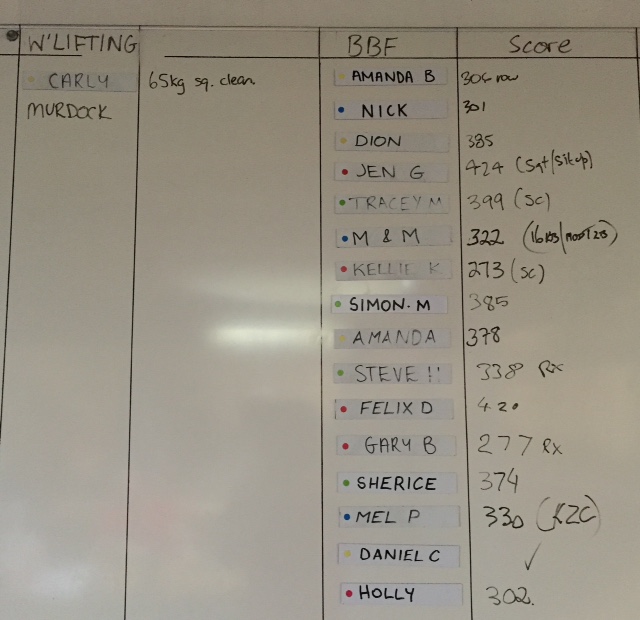 W'LIFTING BBF Score
CARLY 65kg sq. clean AMANDA B 304 row
MURDOCK NICK 301
DION 385
JEN G 424 (Sqt/situp)
TRACEY M 399 (SC)
M & M 322
KELLIE K 273 (SC)
SIMON. M 385
AMANDA 378
STEVE 338 RX
FELIX D 420
GARY B 277 RX
SHERICE 374
MEL P 330
DANIEL C ✓
HOLLY 302.